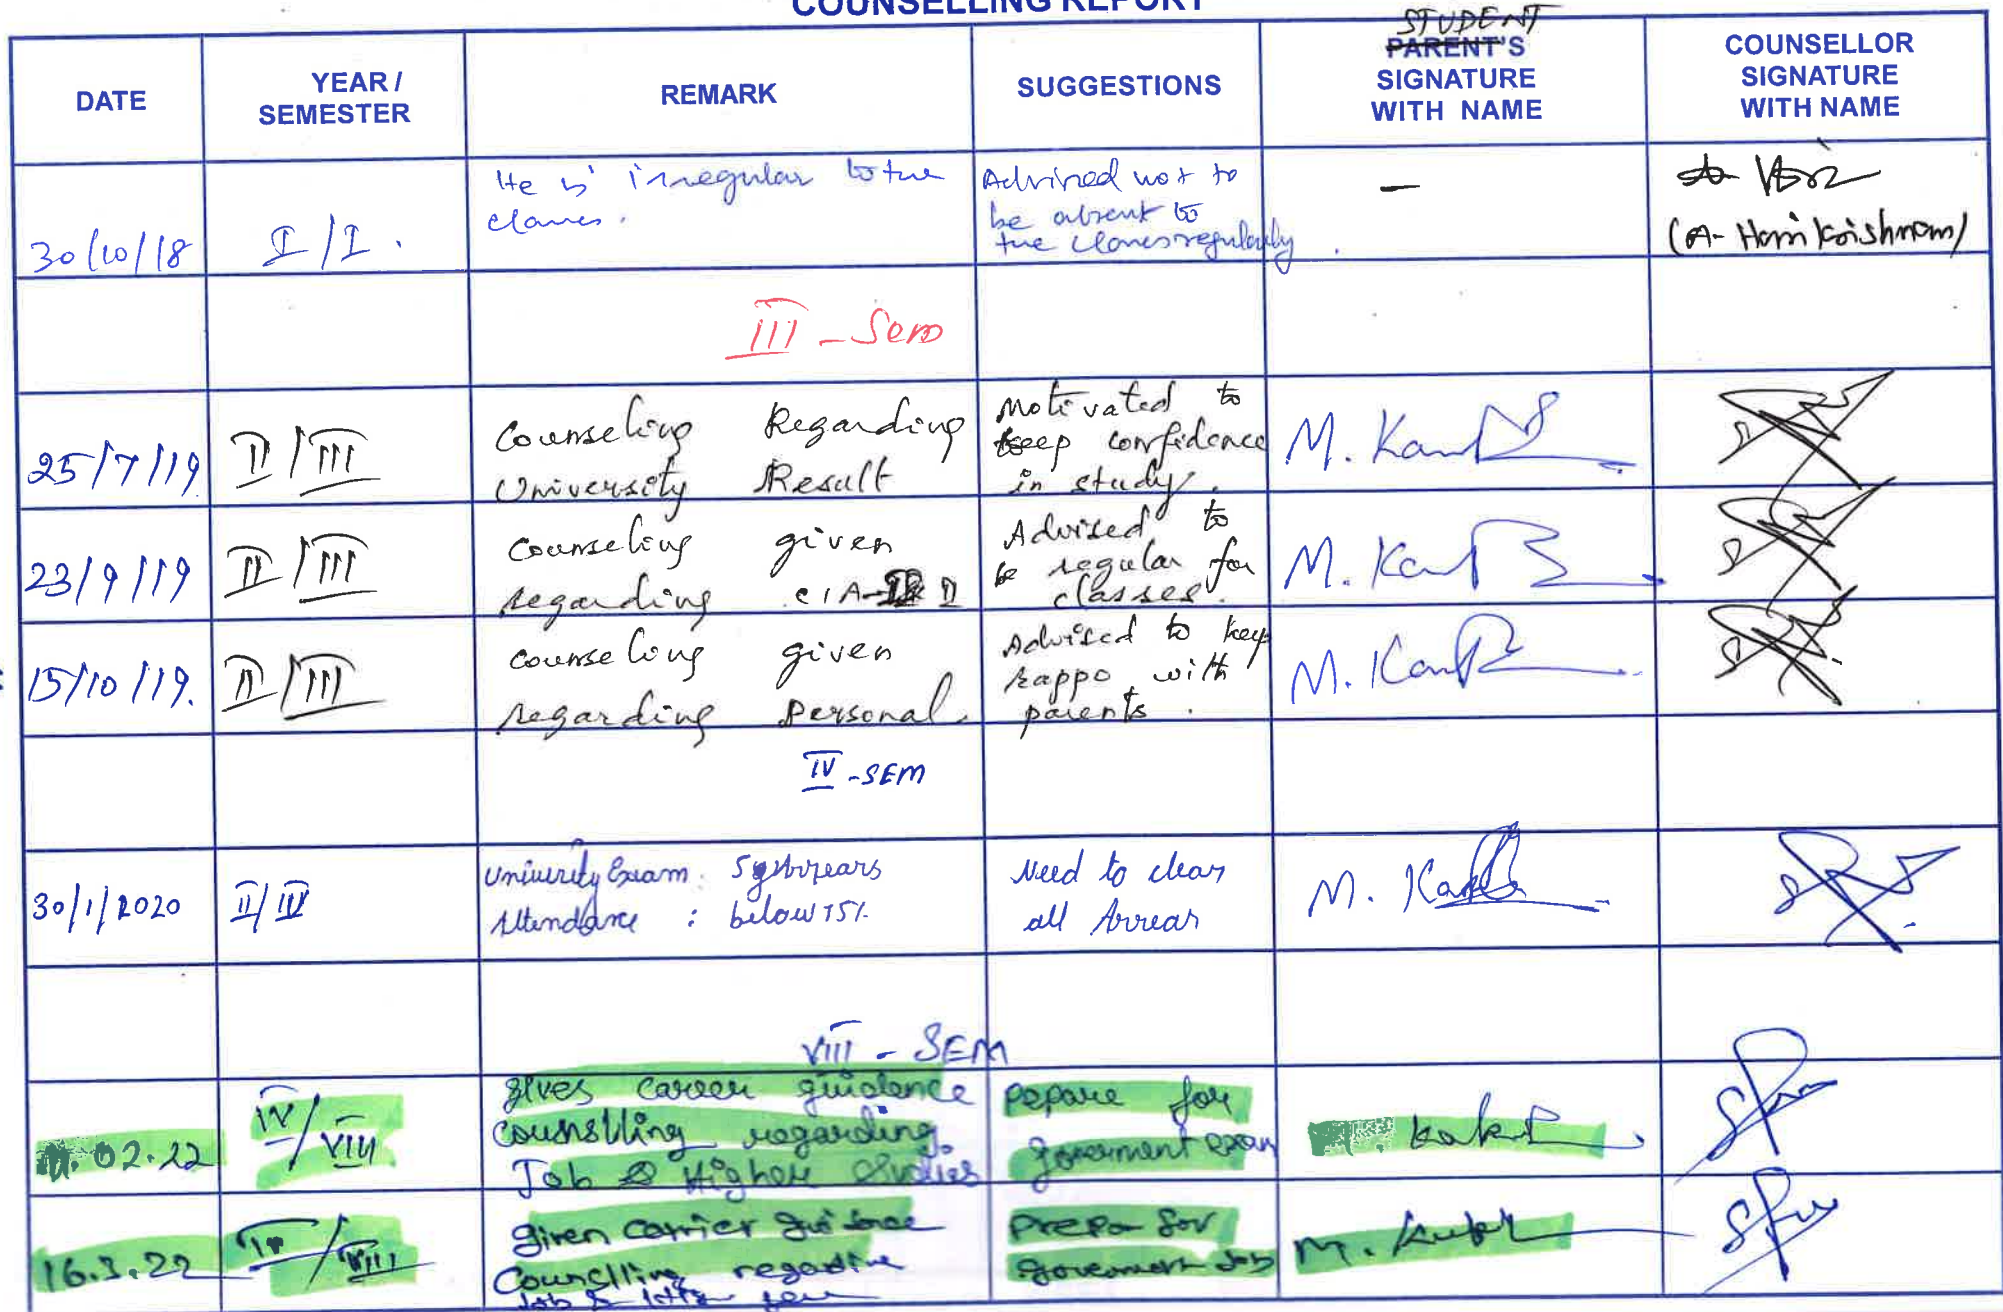 COUNSELLING REPORT
DATE
YEAR /
SEMESTER
REMARK
SUGGESTIONS
STUDENT
PARENT'S
SIGNATURE
WITH NAME
COUNSELLOR
SIGNATURE
WITH NAME
30/10/18
I/I.
He is irregular to the
classes.
Advised not to
be absent to
the classes regularly.
—
(A. Harikrishnan)
III - Sem
25/7/19
II/III
Counseling Regarding
University Result
Motivated to
keep confidence
in study.
M.
23/9/19
II/III
Counseling given
regarding CIA- II
Advised to
be regular for
classes.
M.
15/10/19.
II/III
Counseling given
regarding personal.
Advised to keep
rappo with
parents.
M.
IV - SEM
30/1/2020
II/IV
University Exam : 5 Arrears
Attendance : below 75%
Need to clear
all Arrear
M.
VIII - SEM
.02.22
IV/VIII
gives career guidance
counslling regarding
Job & Higher Studies
Pepare for
Goverment exam
16.3.22
IV/VIII
given carrier guidance
Counclling regarding
Job &
Prepar for
Government Job
M.